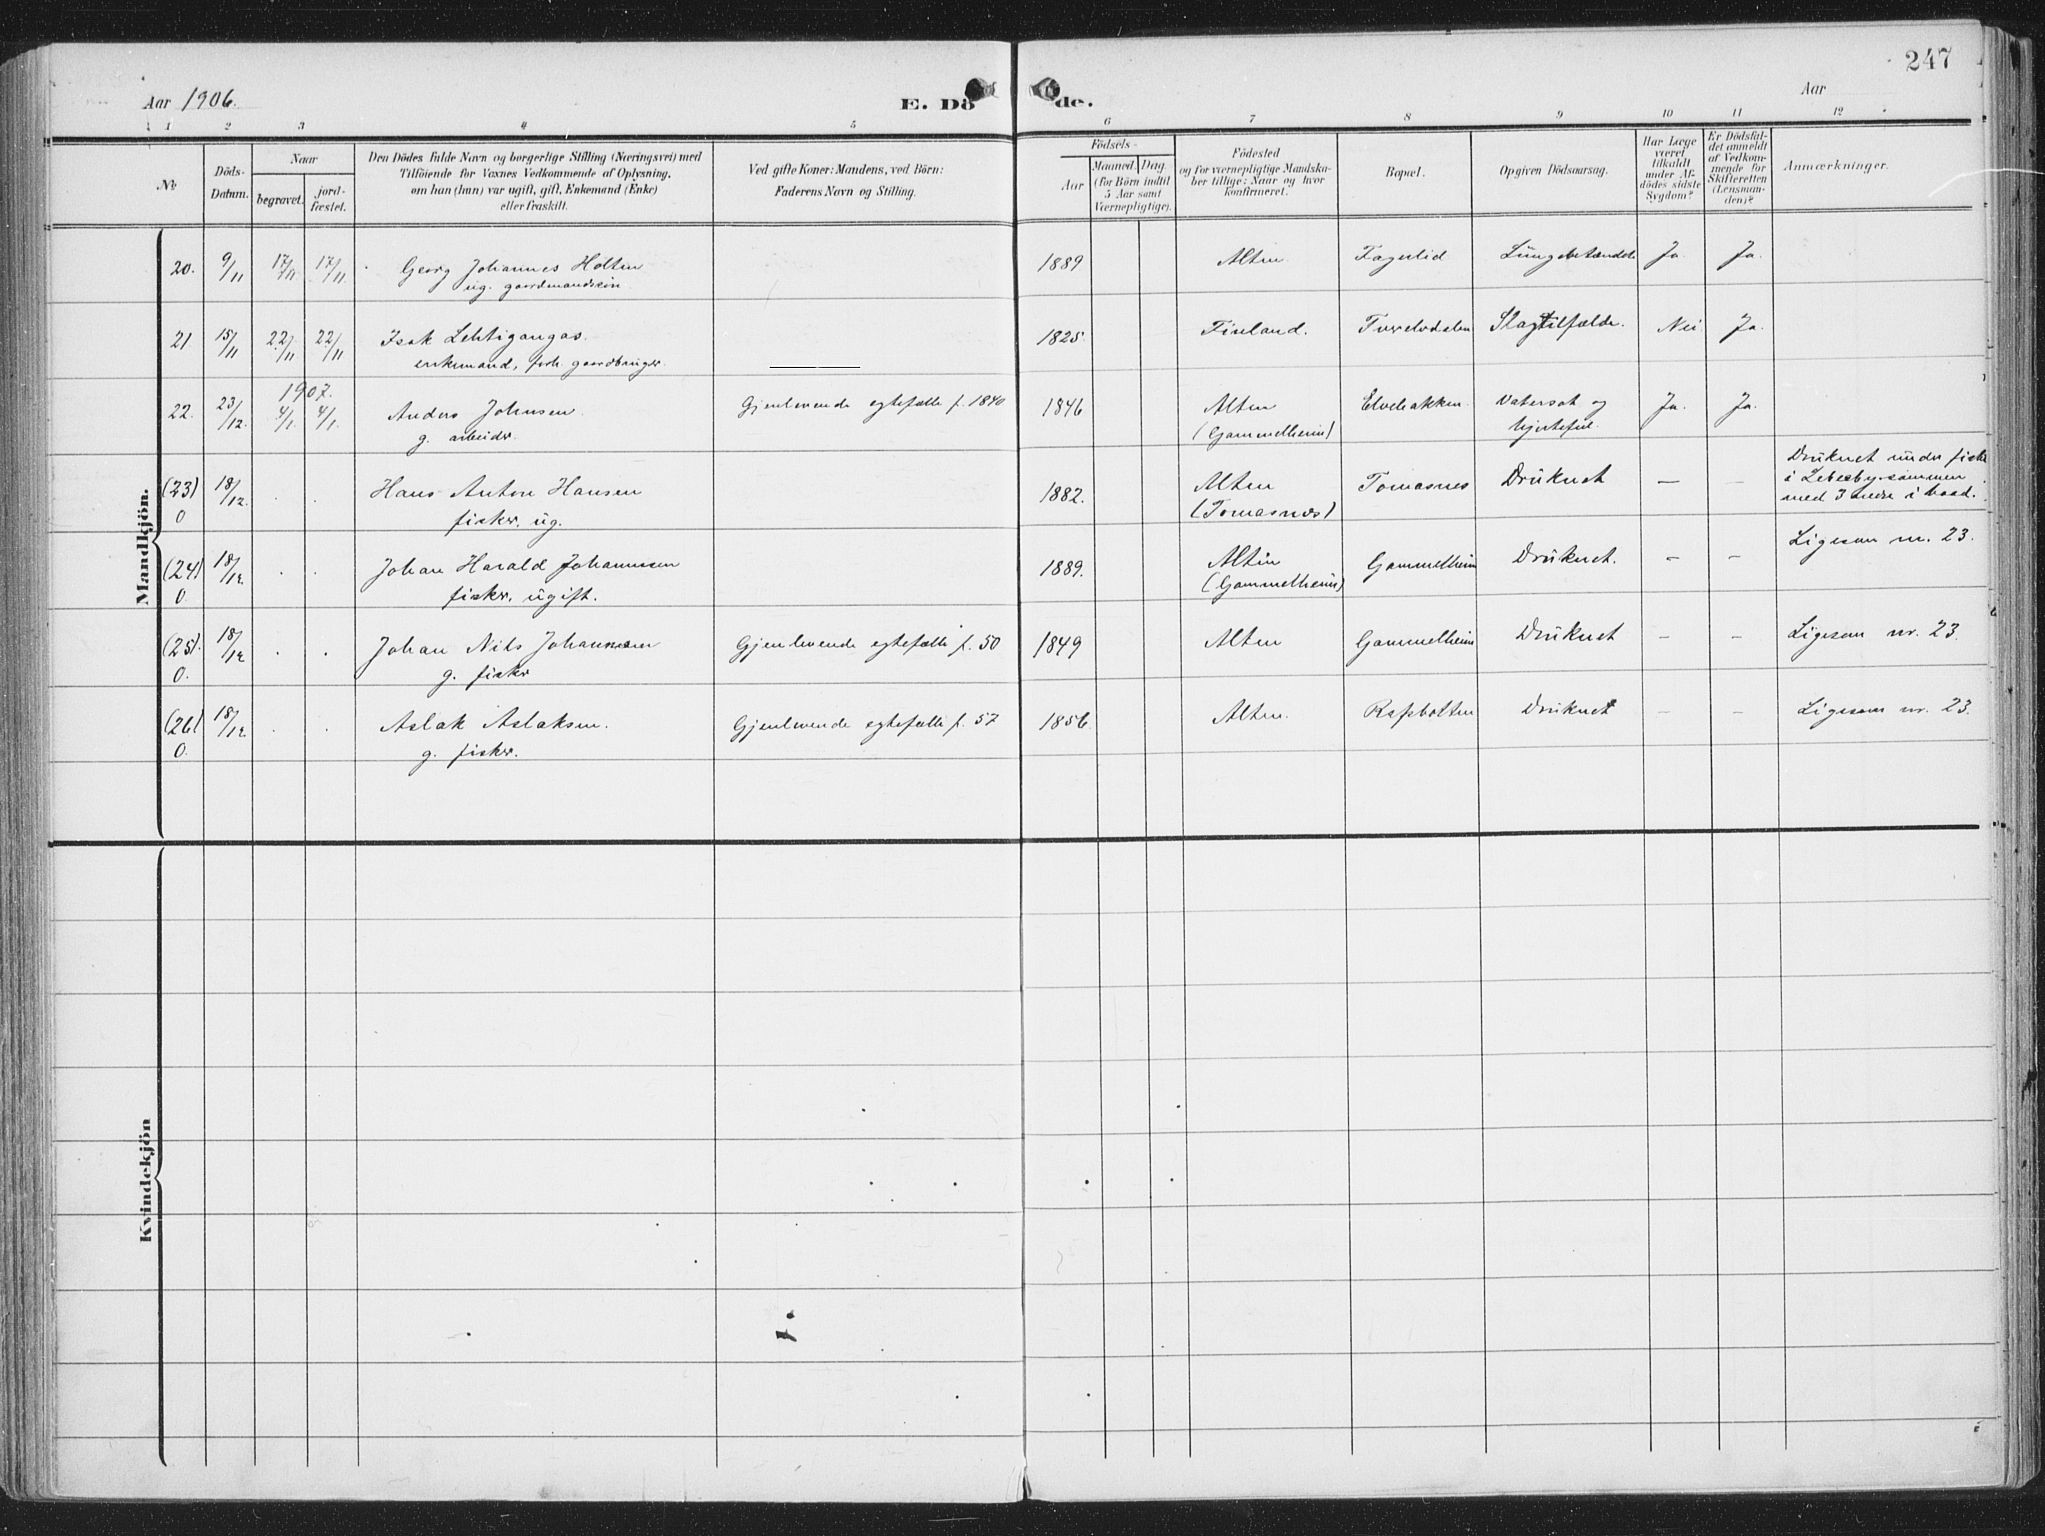 247
Aar 1906. E. Dö de. Aar
1 2 3 4 5 6 7 8 9 10 11 12
Nr
Döds-
Datum.
Naar
begravet.
jord-
fæstet.
Den Dödes fulde Navn og borgerlige Stilling (Næringsvei) med
Tilföiende for Voxnes Vedkommende af Oplysning,
om han (hun) var ugift, gift, Enkemand (Enke)
eller fraskilt.
Ved gifte Koner: Mandens, ved Börn:
Faderens Navn og Stilling.
Födsels-
Aar
Maaned
Dag.
(for Börn indtil
5 Aar samt
Værnepligtige).
Födested
og for værnepligtige Mandska-
ber tillige: Naar og hvor
konfirmeret.
Bopæl.
Opgiven Dödsaarsag.
Har Læge
været
tilkaldt
under Af-
dödes sidste
Sygdom?
Er Dödsfal-
det anmeldt
af Vedkom-
mende for
Skifteretten
(Lensman-
den)?
Anmærkninger.
Mandkjön.
20. 9/11 17/11 17/11 Georg Johannes Holten 1889 Alten Fagerlid Lungebetændels Ja Ja.
ug. gaardmandssön
21 15/11 22/11 22/11 Isak Lehtigangas. 1825 Finland. Tverelvdalen Slagtilfælde. Nei Ja.
enkemand, forh. gaardbruger.
1907.
22. 23/12. 4/1. 4/1. Anders Johnsen. Gjenlevende egtefælle f. 1840 1846 Alten Elvebakken. Vatersot og Ja. Ja.
g. arbeider. (Gammelheim) hjertefeil.
(23) 18/12. Hans Anton Hansen 1882. Alten Tomasnes Druknet — — Druknet under fiske
0 fisker, ug. (Tomasnes) i Lebesby sammen
med 3 andre i baad.
(24) 18/12 Johan Harald Johannesen 1889. Alten Gammelheim Druknet. — — Ligesom nr. 23.
0 fisker, ugift. (Gammelheim)
(25). 18/12 Johan Nils Johannesen Gjenlevende egtefælle f. 50 1849 Alten Gammelheim Druknet — — Ligesom nr. 23.
0. g. fisker
(26) 18/12 Aslak Aslaksen. Gjenlevende egtefælle f. 57 1856 Alten. Rafsbotten Druknet — — Ligesom nr. 23.
0. g. fisker.
Kvindekjön